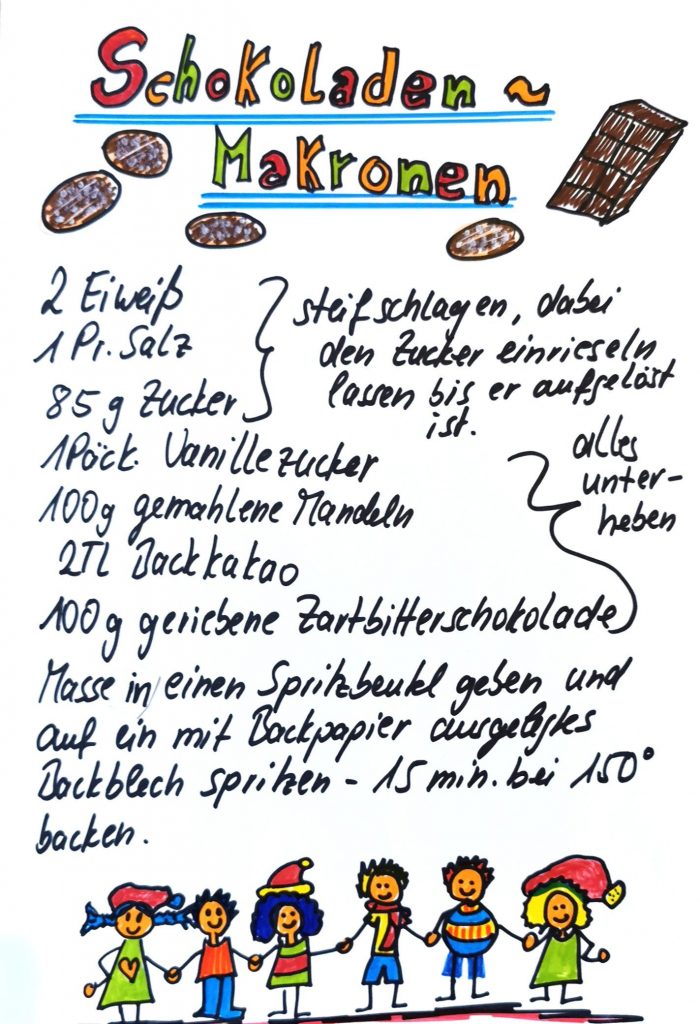 Schokoladen ~
Makronen
2 Eiweiß
1 Pr. Salz
85 g Zucker
steifschlagen, dabei
den Zucker einrieseln
lassen bis er aufgelöst
ist.
1 Pöck. Vanillezucker
100g gemahlene Mandeln
2Tl Backkakao
100g geriebene Zartbitterschokolade
alles
unter-
heben
Masse in einen Spritzbeutel geben und
auf ein mit Backpapier ausgelegtes
Backblech spritzen - 15 min. bei 150°
backen.